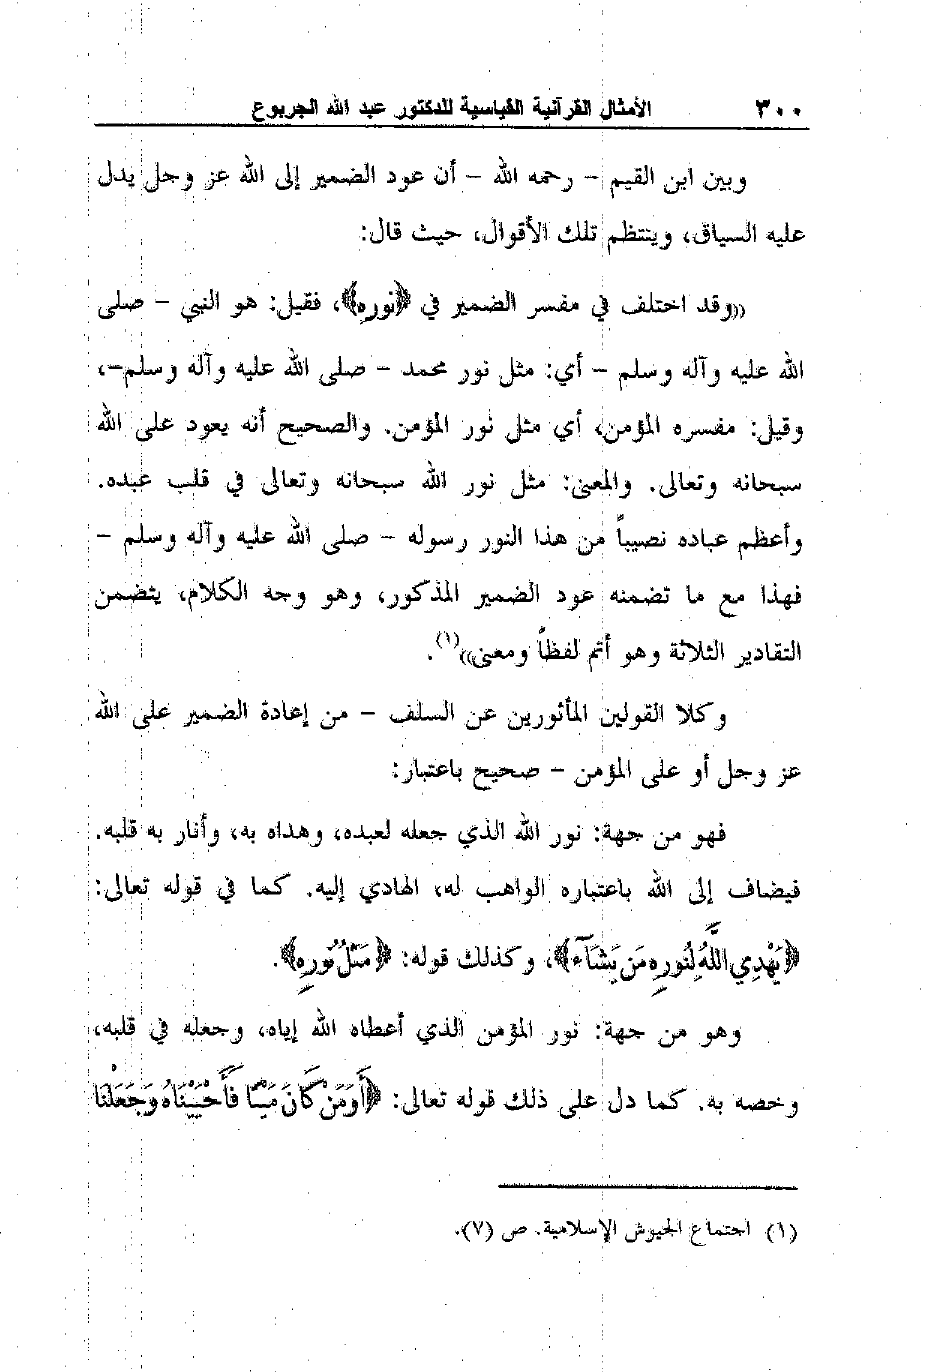 ٣٠٠ الأمثال القرآنية القياسية للدكتور عبد الله الجربوع
وبين ابن القيم - رحمه الله - أن عود الضمير إلى الله عز وجل يدل
عليه السياق، وينتظم تلك الأقوال، حيث قال:
((وقد اختلف في مفسر الضمير في ﴿نوره﴾، فقيل: هو النبي - صلى
الله عليه وآله وسلم - أي: مثل نور محمد - صلى الله عليه وآله وسلم-،
وقيل: مفسره المؤمن، أي مثل نور المؤمن. والصحيح أنه يعود على الله
سبحانه وتعالى. والمعنى: مثل نور الله سبحانه وتعالى في قلب عبده.
وأعظم عباده نصيباً من هذا النور رسوله - صلى الله عليه وآله وسلم -
فهذا مع ما تضمنه عود الضمير المذكور، وهو وجه الكلام، يتضمن
التقادير الثلاثة وهو أتم لفظاً ومعنى))(١).
وكلا القولين المأثورين عن السلف - من إعادة الضمير على الله
عز وجل أو على المؤمن - صحيح باعتبار:
فهو من جهة: نور الله الذي جعله لعبده، وهداه به، وأنار به قلبه.
فيضاف إلى الله باعتباره الواهب له، الهادي إليه. كما في قوله تعالى:
﴿يَهْدِي اللَّهُ لِنُورِهِ مَن يَشَآءُ﴾، وكذلك قوله: ﴿مَثَلُ نُورِهِ﴾.
وهو من جهة: نور المؤمن الذي أعطاه الله إياه، وجعله في قلبه،
وخصه به. كما دل على ذلك قوله تعالى: ﴿أَوَمَن كَانَ مَيْتًا فَأَحْيَيْنَاهُ وَجَعَلْنَا
(١) اجتماع الجيوش الإسلامية. ص (٧).